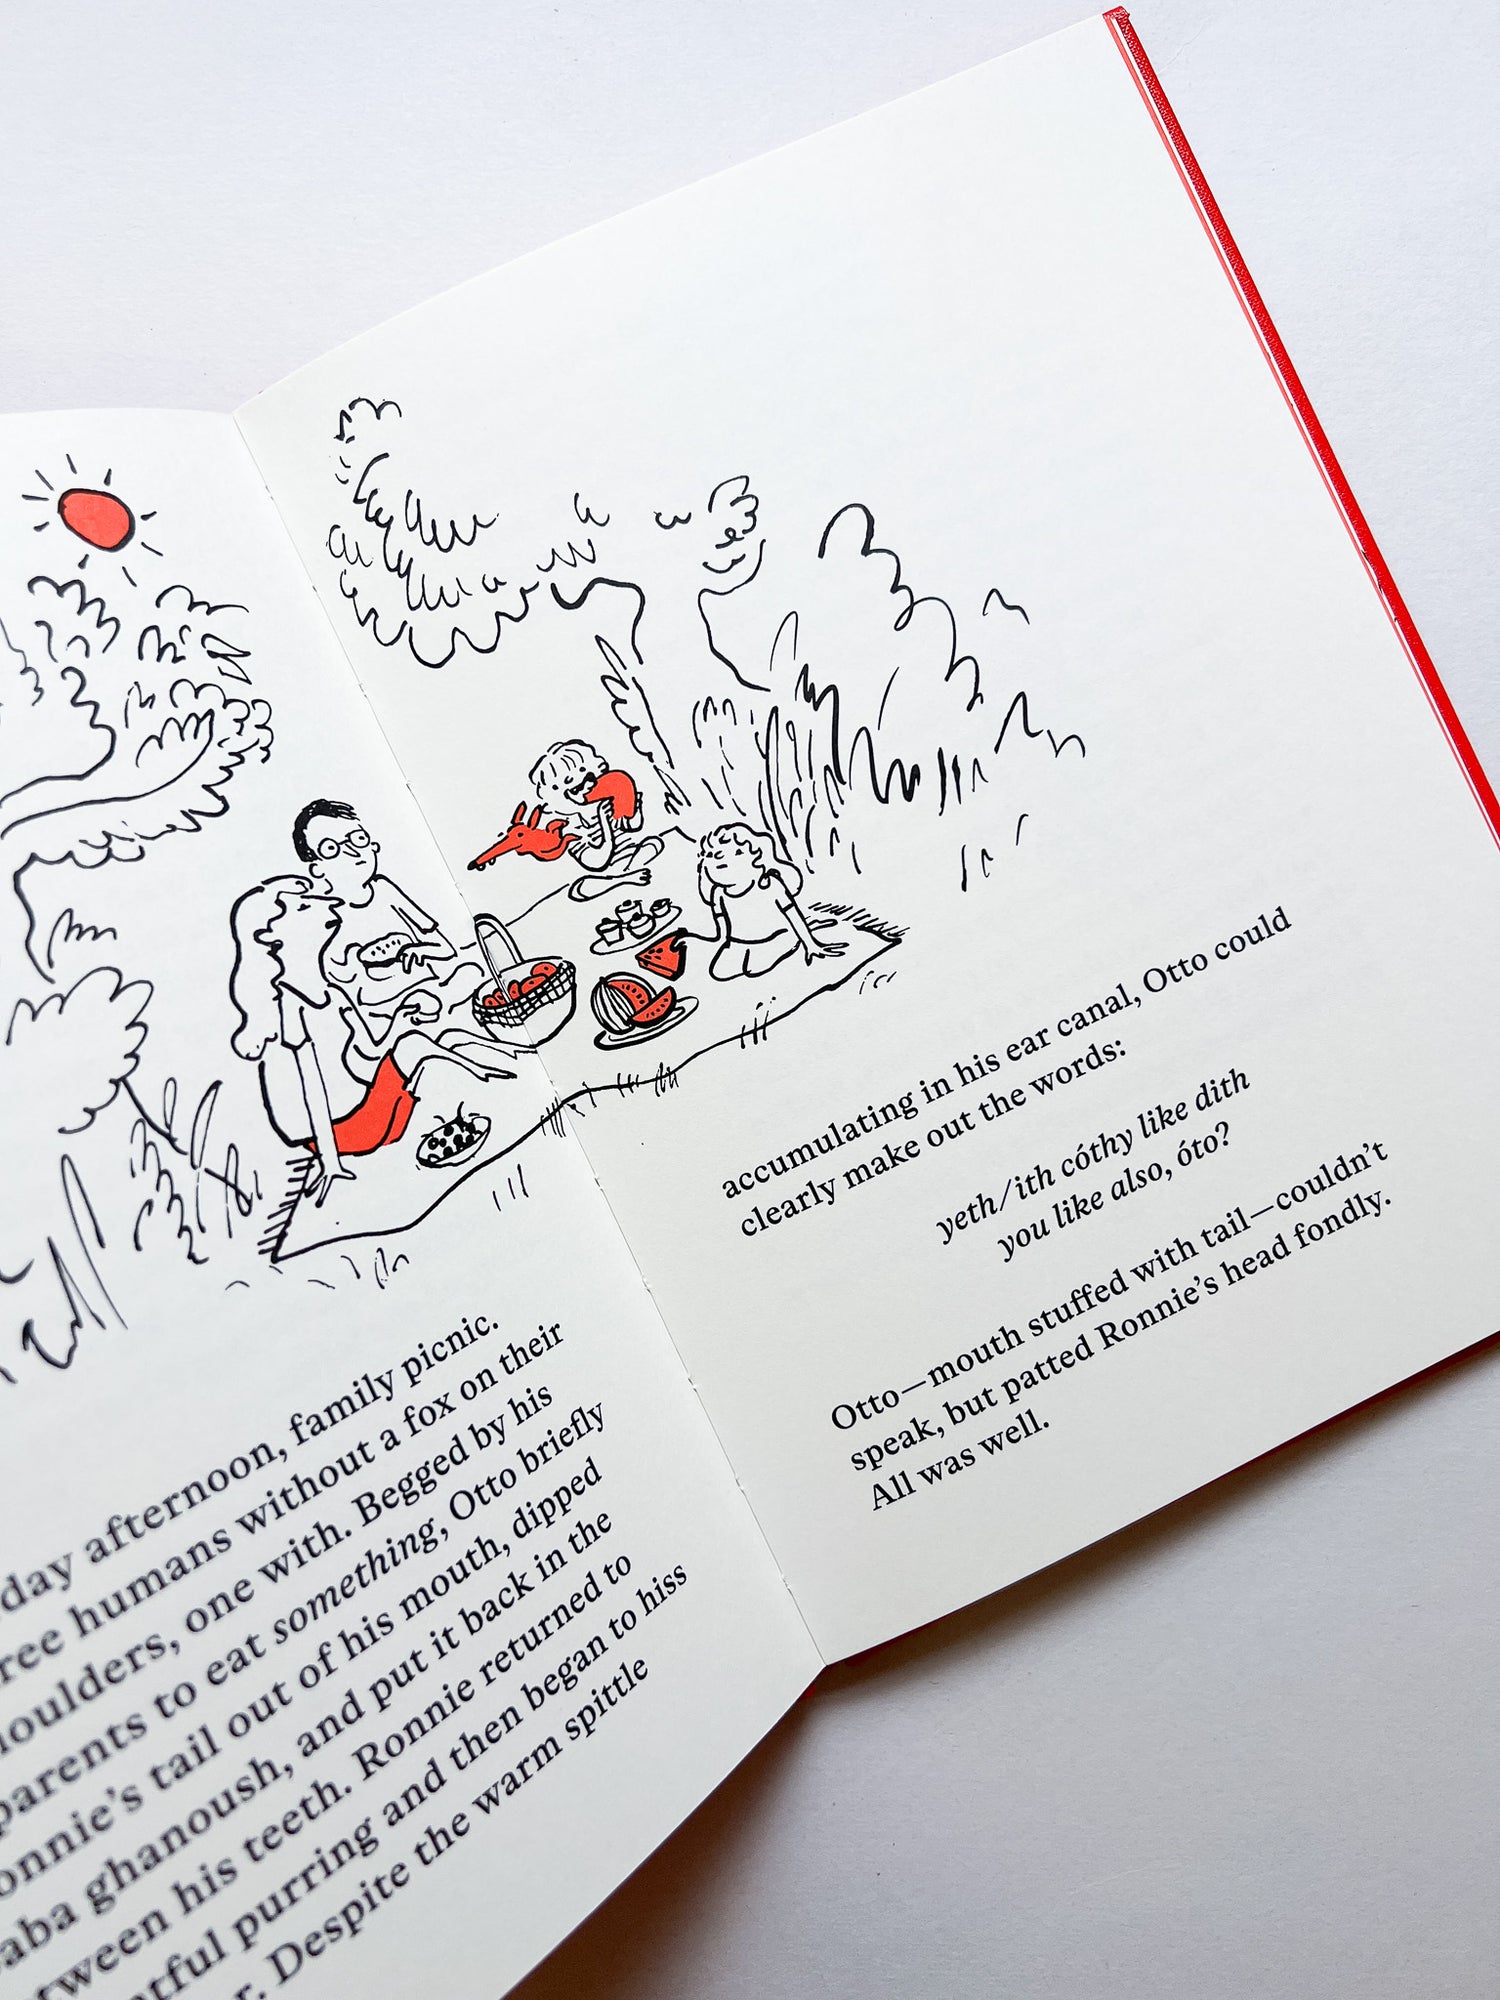 day afternoon, family picnic.
humans without a fox on their
one with. Begged by his
parents to eat something, Otto briefly
tail out of his mouth, dipped
ghanoush, and put it back in the
his teeth. Ronnie returned to
purring and then began to hiss
Despite the warm spittle
accumulating in his ear canal, Otto could
clearly make out the words:
yeth/ith cóthy like dith
you like also, óto?
Otto—mouth stuffed with tail—couldn't
speak, but patted Ronnie's head fondly.
All was well.